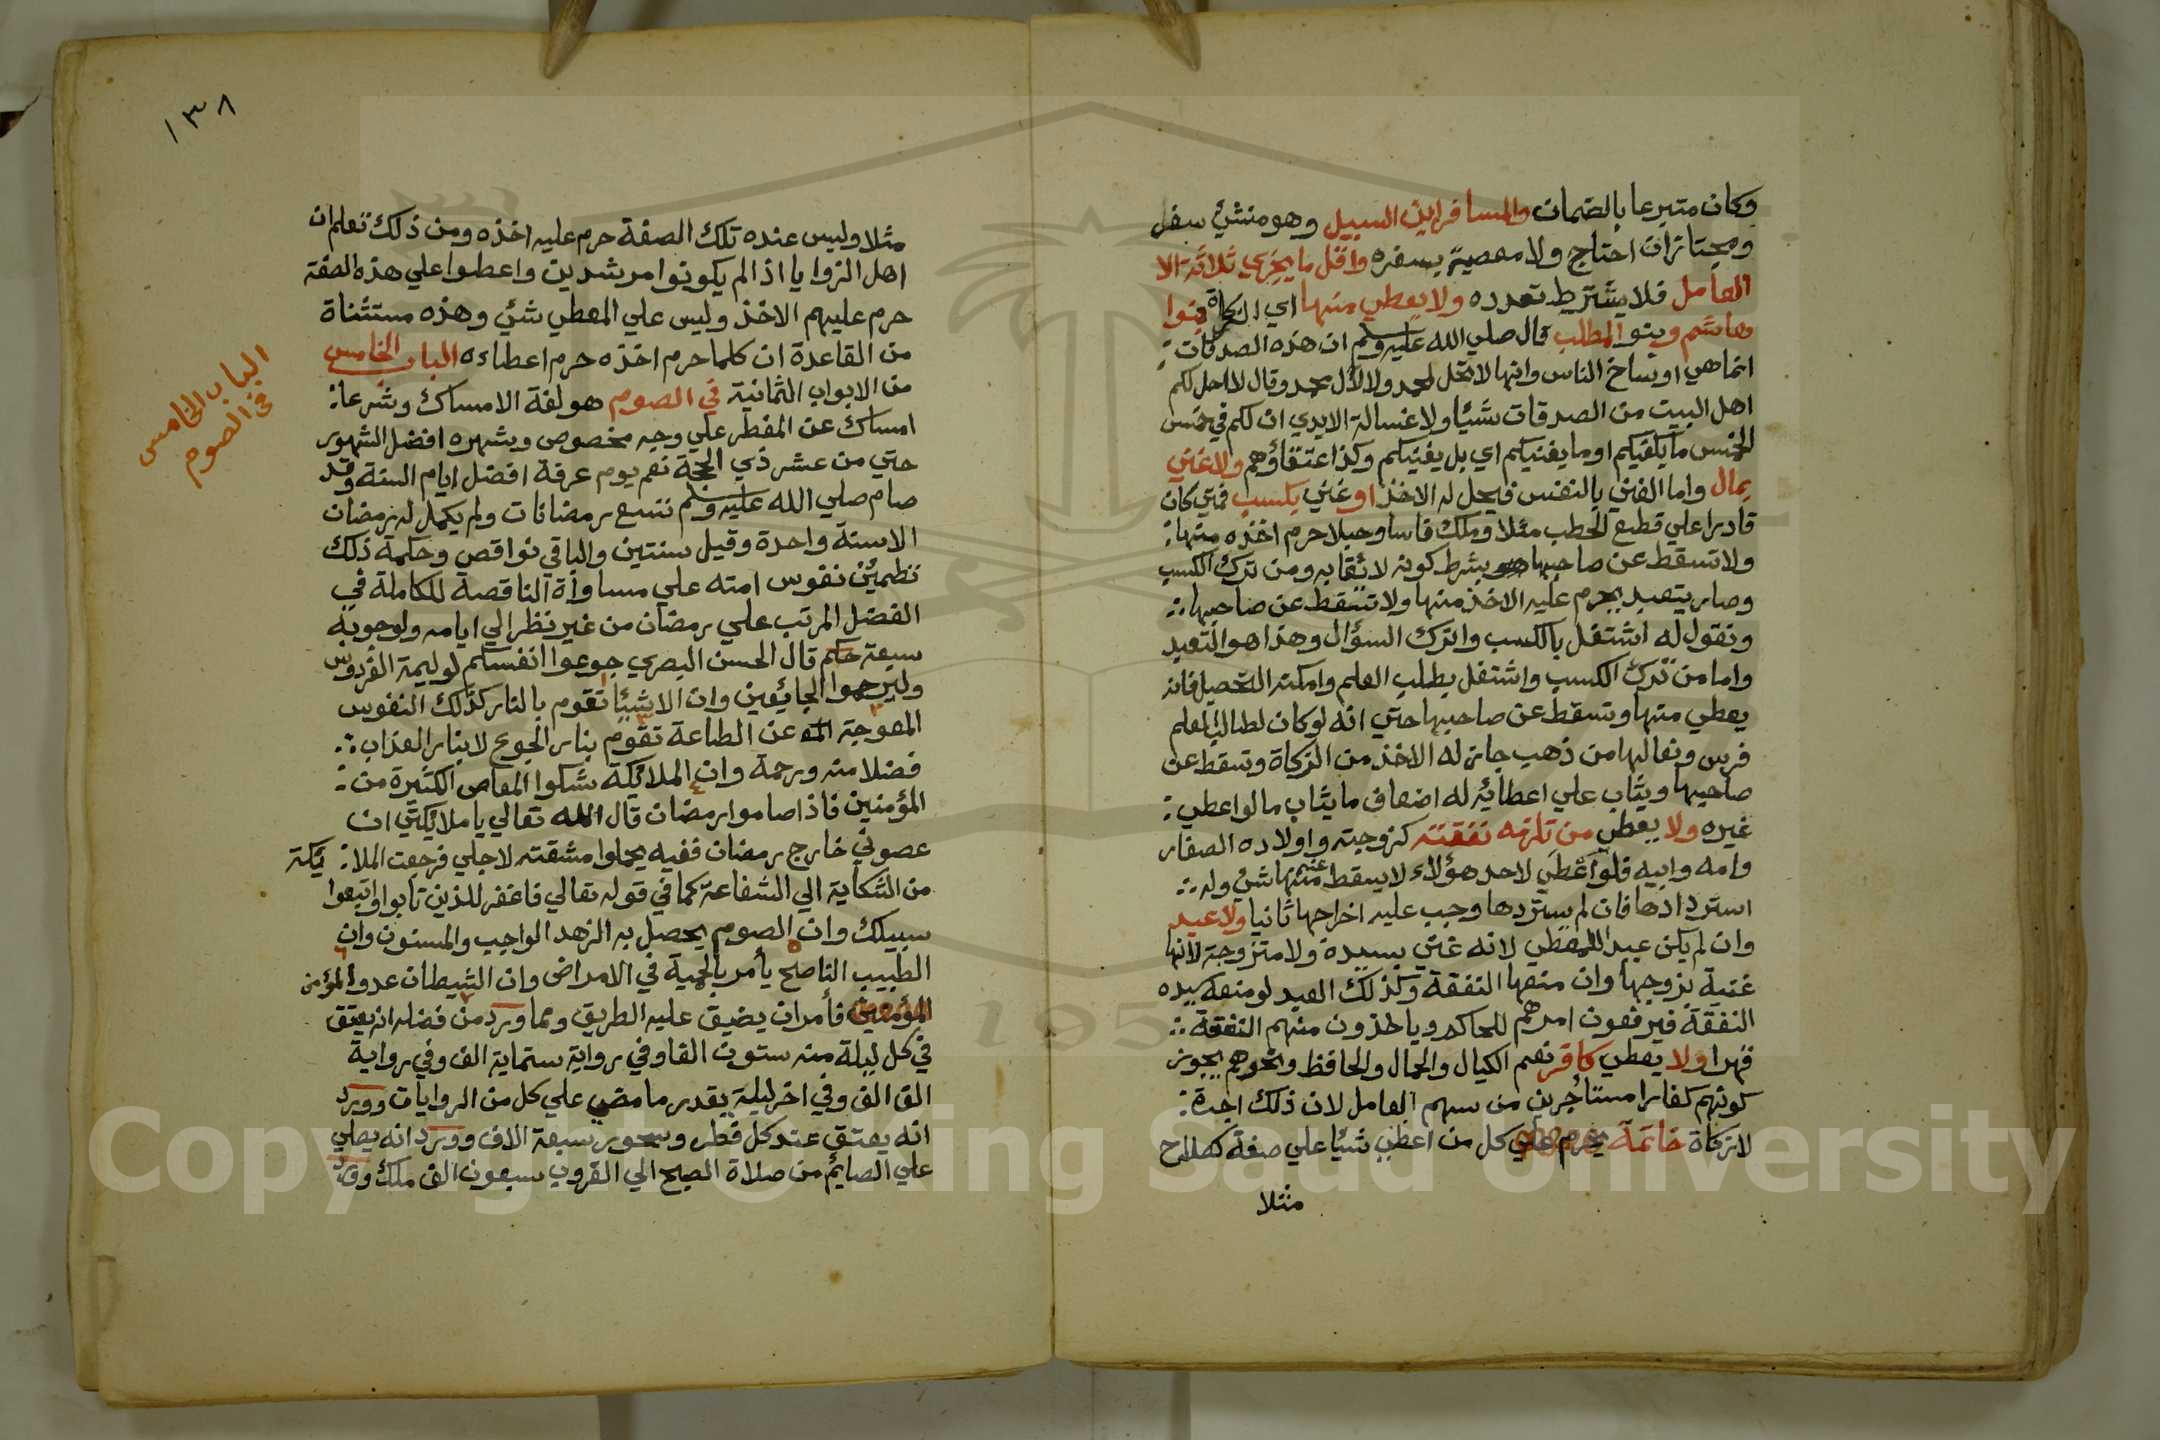 وكان متبرعا بالضمان والمسافر ابن السبيل وهو منشئ سفر
ومجتازان احتاج ولا معصية بسفره واقل ما يجزي ثلاثة الا
العامل فلا يشترط تعدده ولا يعطي منها اي الزكاة بنوا
هاشم وبنو المطلب قال صلي الله عليه وسلم ان هذه الصدقات
انما هي اوساخ الناس وانها لا تحل لمحمد ولا لآل محمد وقال لا احل لكم
اهل البيت من الصدقات شيئا ولا غسالة الايدي ان لكم في خمس
الخمس ما يكفيكم او ما يغنيكم اي بل يغنيكم وكذا عتقاؤهم ولا غني
بمال واما الغني بالنفس فيحل له الاخذ او غني بكسب فمتي كان
قادرا علي قطع الحطب مثلا وملك فاسا وحبلا حرم اخذه منها
ولا تسقط عن صاحبها بشرط كونه لائقا به ومن ترك الكسب
وصار يتعبد يحرم عليه الاخذ منها ولا تسقط عن صاحبها
ونقول له اشتغل بالكسب واترك السؤال وهذا هو التعبد
واما من ترك الكسب واشتغل بطلب العلم وامكنه التحصيل فانه
يعطي منها وتسقط عن صاحبها حتي انه لو كان لطالب العلم
فرس ونعالها من ذهب جاز له الاخذ من الزكاة وتسقط عن
صاحبها ويثاب علي اعطائه له اضعاف ما يثاب ما لو اعطي
غيره ولا يعطي من تلزمه نفقته كزوجته واولاده الصغار
وامه وابيه فلو اعطي لاحد هؤلاء لا يسقط عنه منها شئ وله
استردادها فان لم يستردها وجب عليه اخراجها ثانيا ولا عبد
وان لم يكن عبد المعطي لانه غني بسيده ولا متزوجة لانها
غنية بزوجها وان منعها النفقة وكذلك العبد لو منعه سيده
النفقة فيرفعون امرهم للحاكم وياخذون منهم النفقة
قهرا ولا يعطي كافر نعم الكيال والحمال والحافظ ونحوهم يجوز
كونهم كفارا مستأجرين من سهم العامل لان ذلك اجرة
لا زكاة خاتمة يحرم علي كل من اعطي شيئا علي صفة كصلاح
مثلا
١٣٨
مثلا وليس عنده تلك الصفة حرم عليه اخذه ومن ذلك تعلم ان
اهل الزوايا اذا لم يكونوا مرشدين واعطوا علي هذه الصفة
حرم عليهم الاخذ وليس علي المعطي شئ وهذه مستثناة
من القاعدة ان كلما حرم اخذه حرم اعطاءه الباب الخامس
من الابواب الثمانية في الصوم هو لغة الامساك وشرعا
الباب الخامس
في الصوم
امساك عن المفطر علي وجه مخصوص وشهره افضل الشهور
حتي من عشر ذي الحجة نعم يوم عرفة افضل ايام السنة وقد
صام صلي الله عليه وسلم تسع رمضانات ولم يكمل له رمضان
الا سنة واحدة وقيل سنتين والباقي نواقص وحكمة ذلك
تطمئن نفوس امته علي مساواة الناقصة للكاملة في
الفضل المرتب علي رمضان من غير نظر الي ايامه ولوجوبه
سبعة حكم قال الحسن البصري جوعوا انفسكم لوليمة الفردوس
وليرحموا الجائعين وان الاشيئا تقوم بالنار كذلك النفوس
المعوجة عن الطاعة تقوم بنار الجوع لا بنار العذاب
فضلا منه ورحمة وان الملائكة شكوا المعاص الكثيرة من
المؤمنين فاذا صاموا رمضان قال الله تعالي يا ملائكتي ان
عصوني خارج رمضان ففيه يحملوا مشقته لاجلي فرجعت الملا ئكة
من الشكاية الي الشفاعة كما في قوله تعالي فاغفر للذين تابوا واتبعوا
سبيلك وان الصوم يحصل به الزهد الواجب والمسنون وان
الطبيب الناصح يأمر بالحمية في الامراض وان الشيطان عدو المؤمن
المؤمنين فأمر ان يضيق عليه الطريق ومما ورد من فضله انه يعتق
في كل ليلة منه ستون الفا وفي رواية ستماية الف وفي رواية
الف الف وفي اخر ليلة بقدر ما مضي علي كل من الروايات وورد
انه يعتق عند كل فطر وسحور سبعة الاف وورد انه يصلي
علي الصائم من صلاة الصبح الي الغروب سبعون الف ملك وورد